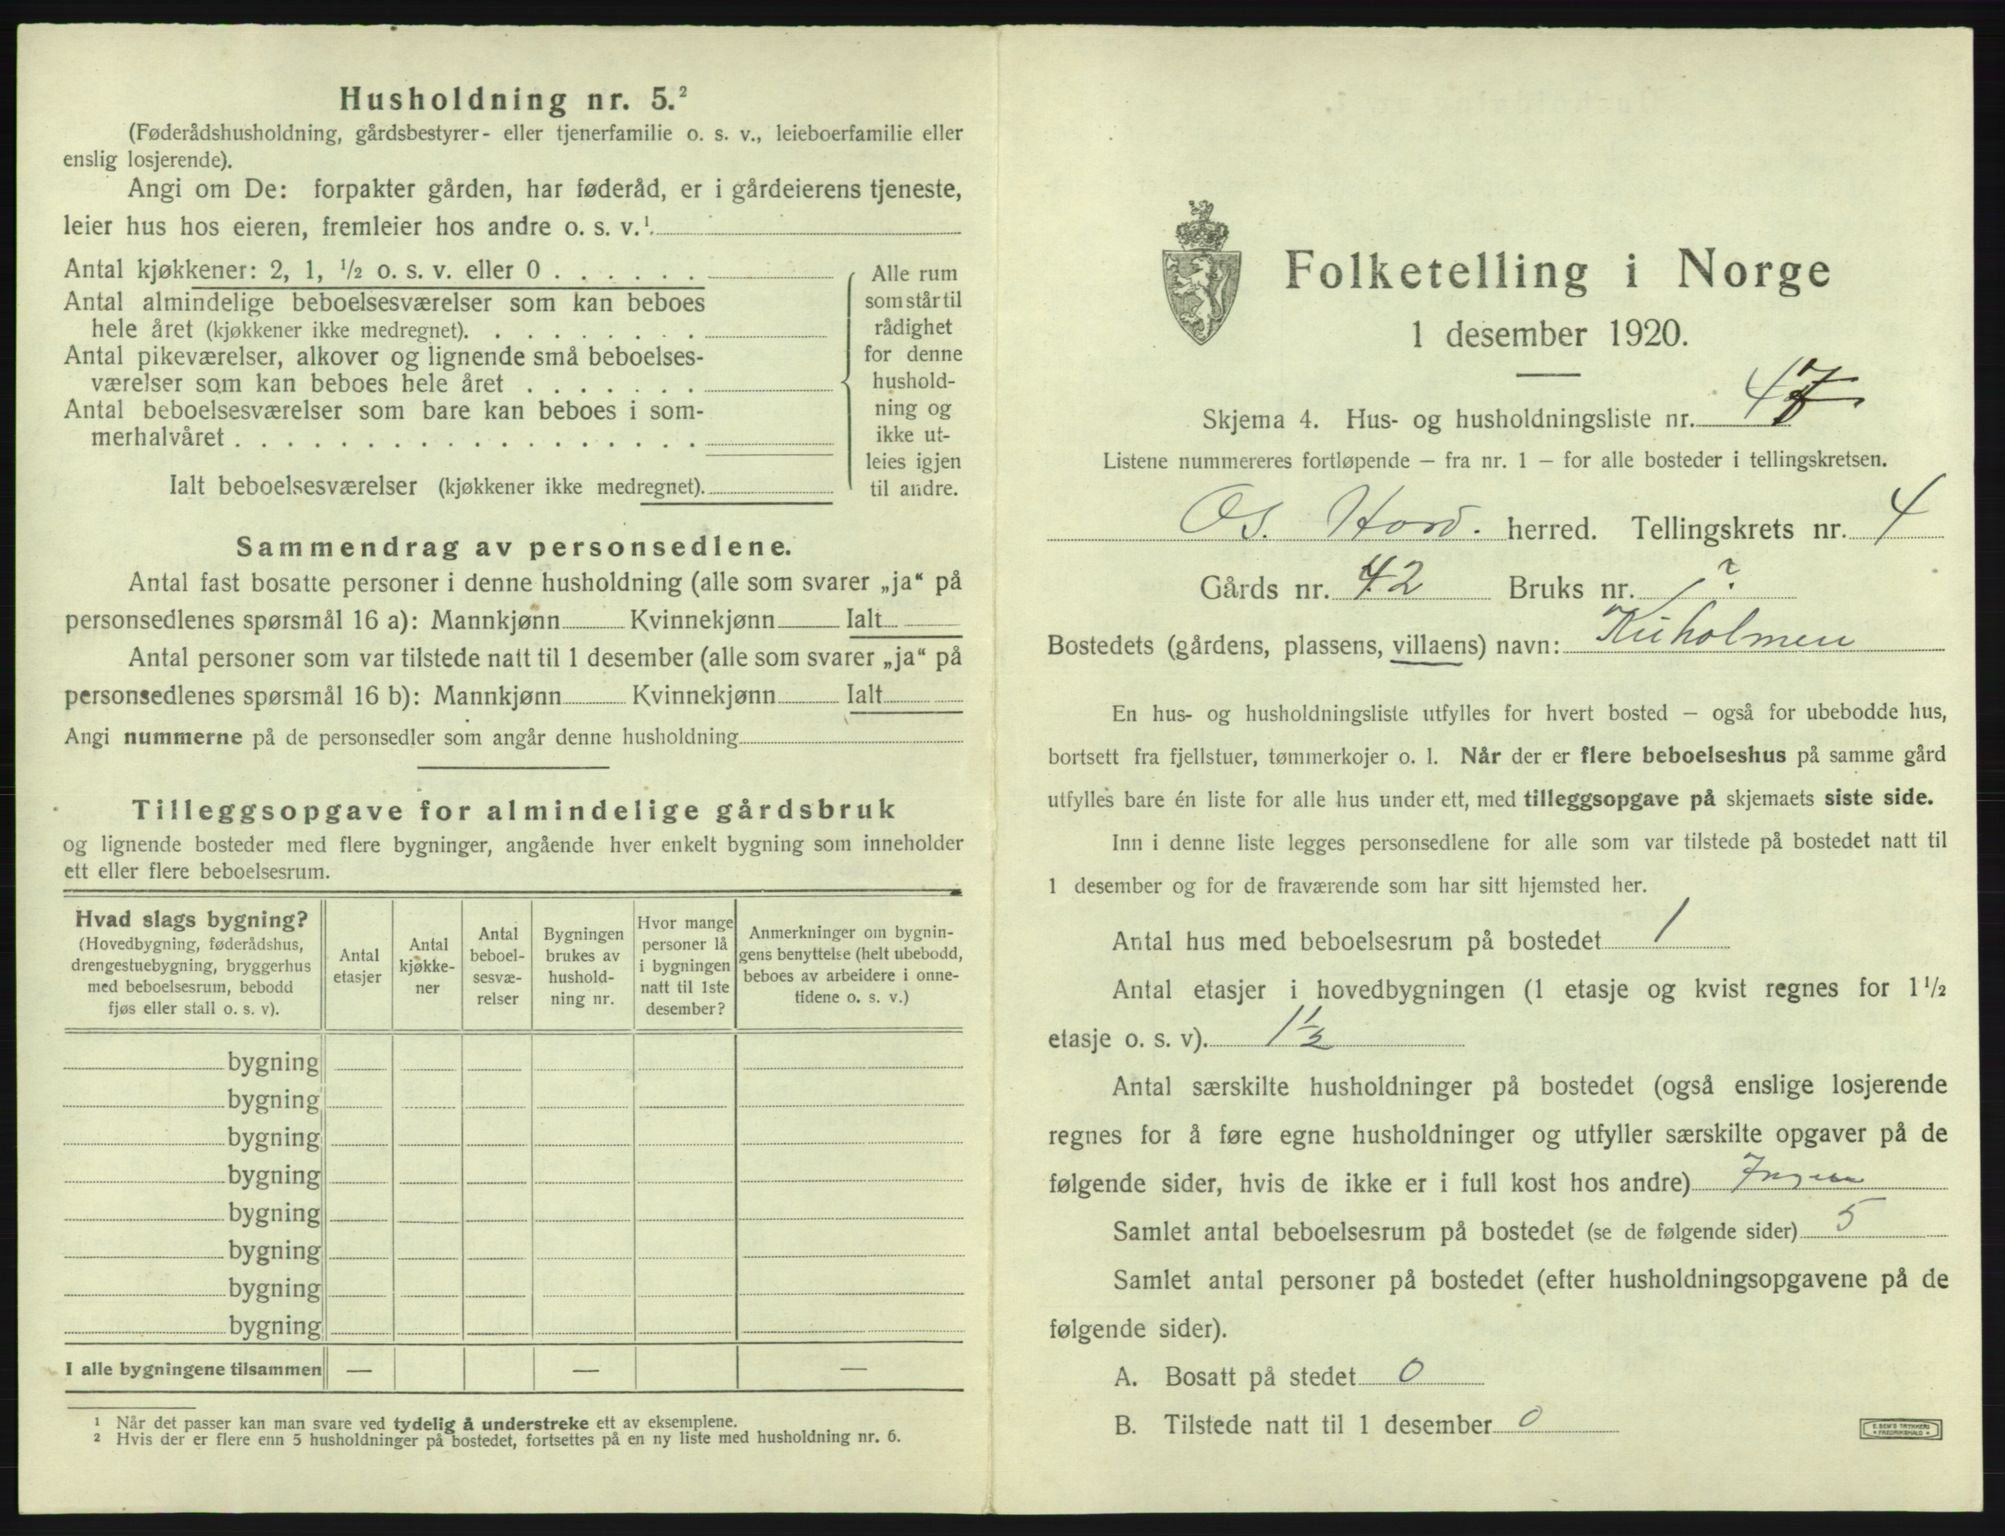 Husholdning nr. 5.²
(Føderådshusholdning, gårdsbestyrer- eller tjenerfamilie o. s. v., leieboerfamilie eller
enslig losjerende).
Angi om De: forpakter gården, har føderåd, er i gårdeierens tjeneste,
leier hus hos eieren, fremleier hos andre o. s. v.¹.
Antal kjøkkener: 2, 1, ½ o. s. v. eller 0 . . . . . .
Antal almindelige beboelsesværelser som kan beboes
hele året (kjøkkener ikke medregnet). . . . . . . . .
Antal pikeværelser, alkover og lignende små beboelses-
værelser som kan beboes hele året . . . . . . .
Antal beboelsesværelser som bare kan beboes i som-
merhalvåret . . . . . . . . . . . . . . . . . .
Ialt beboelsesværelser (kjøkkener ikke medregnet).
Alle rum
som står til
rådighet
for denne
hushold-
ning og
ikke ut-
leies igjen
til andre.
Sammendrag av personsedlene.
Antal fast bosatte personer i denne husholdning (alle som svarer „ja“ på
personsedlenes spørsmål 16 a): Mannkjønn Kvinnekjønn Ialt
Antal personer som var tilstede natt til 1 desember (alle som svarer „ja“ på
personsedlenes spørsmål 16 b): Mannkjønn Kvinnekjønn Ialt
Angi nummerne på de personsedler som angår denne husholdning
Tilleggsopgave for almindelige gårdsbruk
og lignende bosteder med flere bygninger, angående hver enkelt bygning som inneholder
ett eller flere beboelsesrum.
Hvad slags bygning?
(Hovedbygning, føderådshus,
drengestuebygning, bryggerhus
med beboelsesrum, bebodd
fjøs eller stall o. s. v).
Antal
etasjer
Antal
kjøkke-
ner
Antal
beboel-
sesvæ-
relser
Bygningen
brukes av
hushold-
ning nr.
Hvor mange
personer lå
i bygningen
natt til 1ste
desember?
Anmerkninger om bygnin-
gens benyttelse (helt ubebodd,
beboes av arbeidere i onne-
tidene o. s. v.)
bygning
bygning
bygning
bygning
bygning
bygning
bygning
bygning
I alle bygningene tilsammen — — —
¹ Når det passer kan man svare ved tydelig å understreke ett av eksemplene.
² Hvis der er flere enn 5 husholdninger på bostedet, fortsettes på en ny liste med husholdning nr. 6.
Folketelling i Norge
1 desember 1920.
Skjema 4. Hus- og husholdningsliste nr. 47
Listene nummereres fortløpende – fra nr. 1 – for alle bosteder i tellingskretsen.
Os. Hord. herred. Tellingskrets nr. 4
Gårds nr. 42 Bruks nr. ?
Bostedets (gårdens, plassens, villaens) navn: Kuholmen
En hus- og husholdningsliste utfylles for hvert bosted – også for ubebodde hus,
bortsett fra fjellstuer, tømmerkojer o. l. Når der er flere beboelseshus på samme gård
utfylles bare én liste for alle hus under ett, med tilleggsopgave på skjemaets siste side.
Inn i denne liste legges personsedlene for alle som var tilstede på bostedet natt til
1 desember og for de fraværende som har sitt hjemsted her.
Antal hus med beboelsesrum på bostedet 1
Antal etasjer i hovedbygningen (1 etasje og kvist regnes for 1½
etasje o. s. v). 1½
Antal særskilte husholdninger på bostedet (også enslige losjerende
regnes for å føre egne husholdninger og utfyller særskilte opgaver på de
følgende sider, hvis de ikke er i full kost hos andre) Ingen
Samlet antal beboelsesrum på bostedet (se de følgende sider) 5
Samlet antal personer på bostedet (efter husholdningsopgavene på de
følgende sider).
A. Bosatt på stedet 0
B. Tilstede natt til 1 desember 0
E. SEM'S TRYKKERI
FREDRIKSHALD